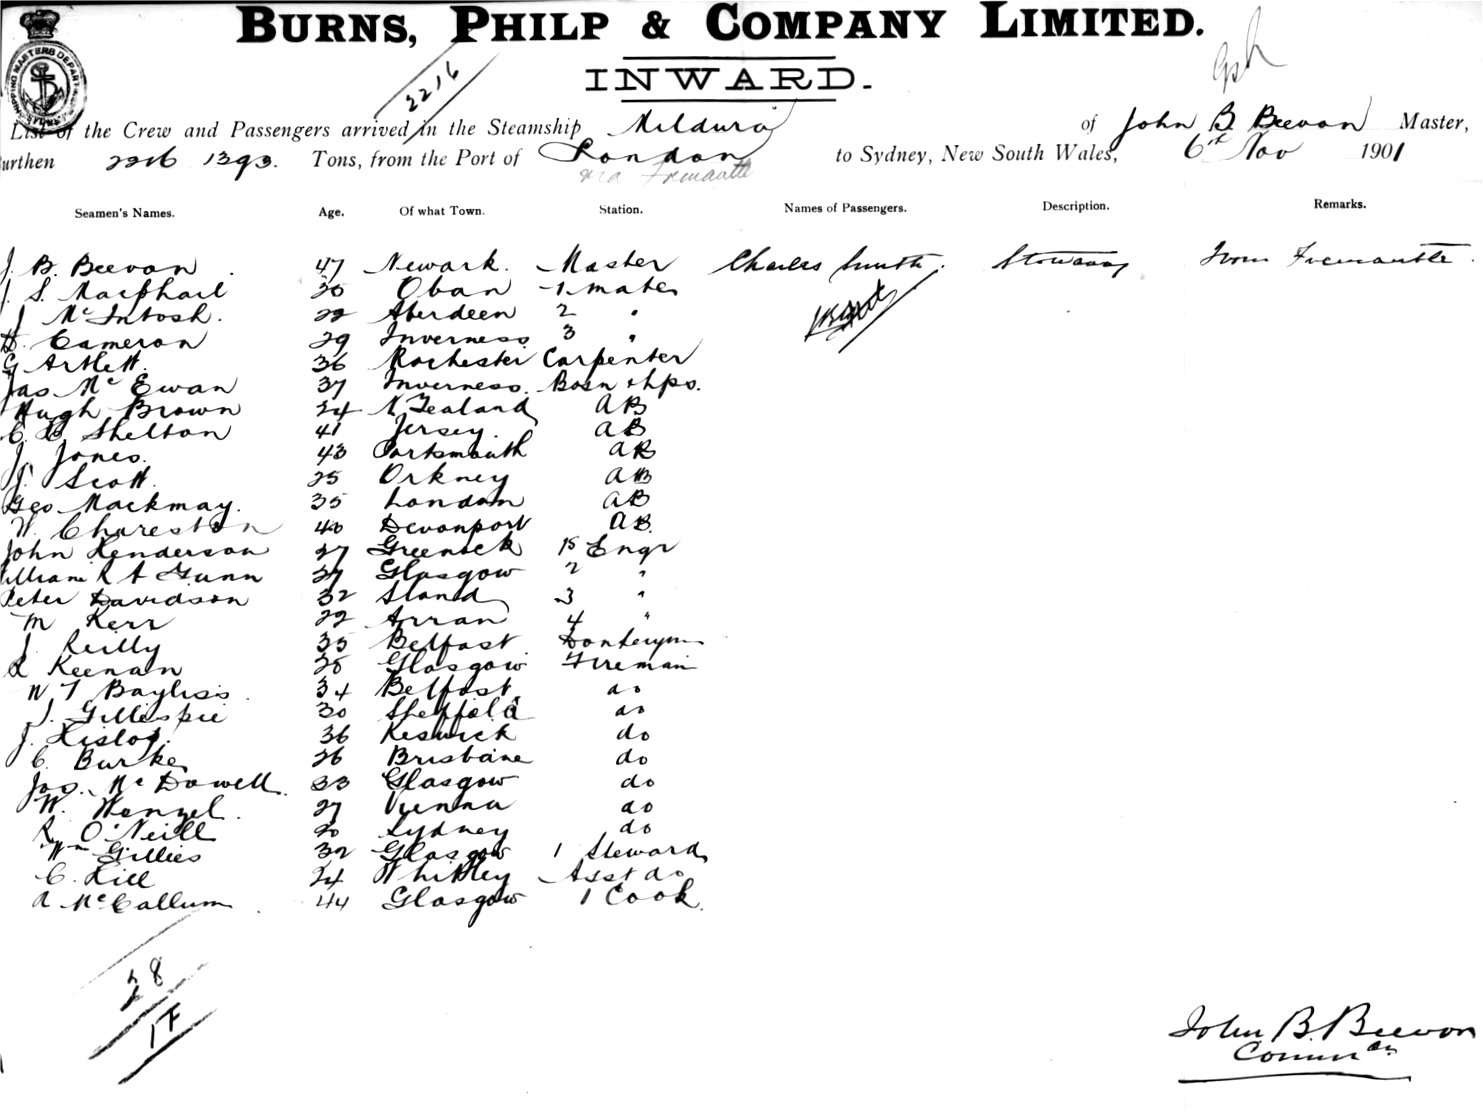 BURNS, PHILP & COMPANY LIMITED.
INWARD.
2216
List of the Crew and Passengers arrived in the Steamship Mildura of John B. Beevon Master,
urthen 2216 1393. Tons, from the Port of London to Sydney, New South Wales, 6th Nov 1901
via Fremantle
Seamen's Names. Age. Of what Town. Station. Names of Passengers. Description. Remarks.
J. B. Beevon 47 Newark. Master Charles Smith. Stoway From Fremantle.
J. S. Macphail Oban 1 mate
J McIntosh. 22 Aberdeen 2 "
Cameron 29 Inverness 3 "
G Artlett. 36 Rochester Carpenter
Jas Mc Ewan 37 Inverness. Bosn & Lps.
Hugh Brown 24 N Zealand AB
C B Shelton 41 Jersey. AB
J. Jones. 43 Portsmouth AB
J. Scott. 25 Orkney AB
Geo Mackmay. 35 London AB
W. Chareston 40 Devonport AB.
John Henderson 27 Greenock 1s Engr
illiam R A Gunn 27 Glasgow 2 "
Peter Davidson 32 3 "
M Kerr 22 Arran 4 "
J. Reilly 35 Belfast Donkeymn
R Keenan Glasgow Fireman
W T Bayliss. 34 Belfast. do
J. Gillespie 30 Sheffield do
J. Hislop. 36 Keswick do
C. Burke 26 Brisbane do
Jas. Mc Dowell. 33 Glasgow do
W. Wenzel. 27 Vienna do
R O'Neill 20 Sydney do
Wm Gillies 32 Glasgow 1 Steward
C. Hill 24 Whitley Asst do
A McCallum 44 Glasgow 1 Cook.
28
1F
John B. Beevon
Commdr